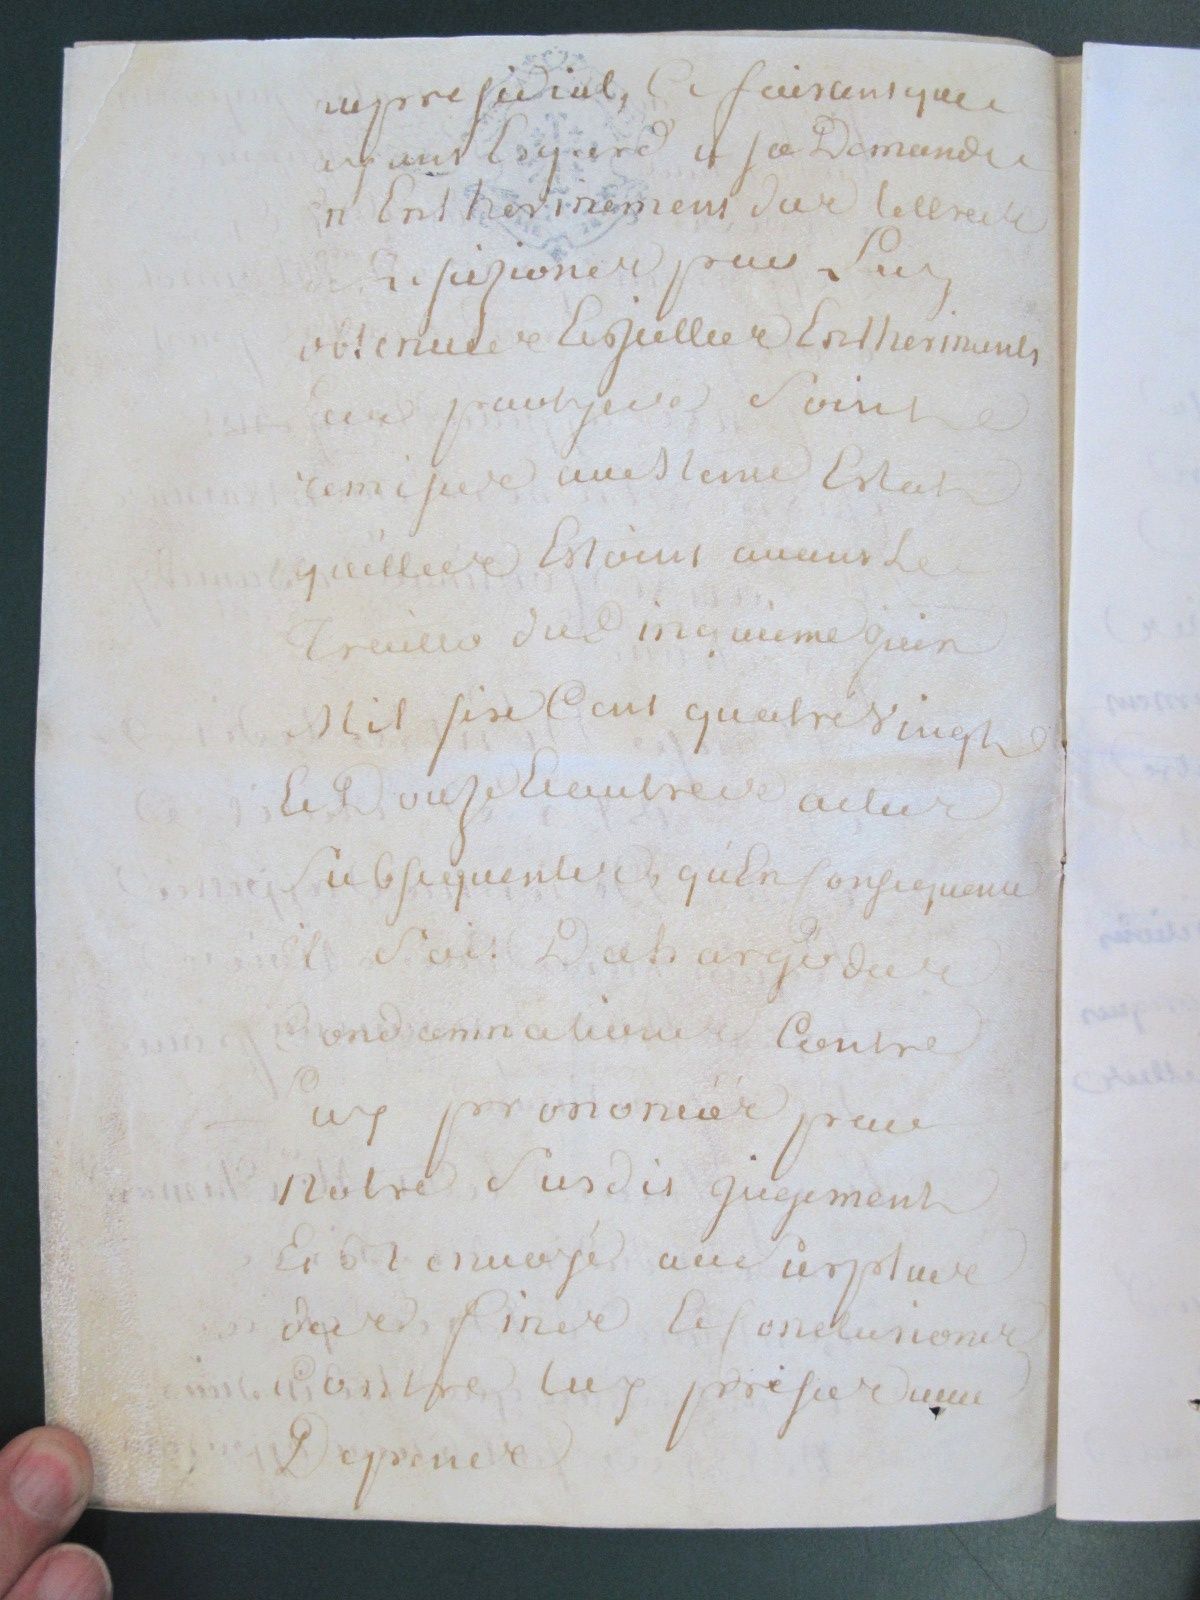 au presidial, Ce faisant que
ayant Esgard a sa Demande
En Entherinement des lettres
de Resizions par Luy
obtenues & Icelles Entherinants
les parthyes Soint
remises au mesme Estat
qu'elles Estoint avant Le
du D inquieme juin
Mil six Cent quatre Vingt
& Douze & autres actes
Subsequentes, qu'En Consequence
il Soit Deschargé des
Condamnations Contre
Luy prononcées par
Notre Susdit jugement
Et Renvoyé aue
des fines & Conclusions
Contre luy prises aue
Depenes